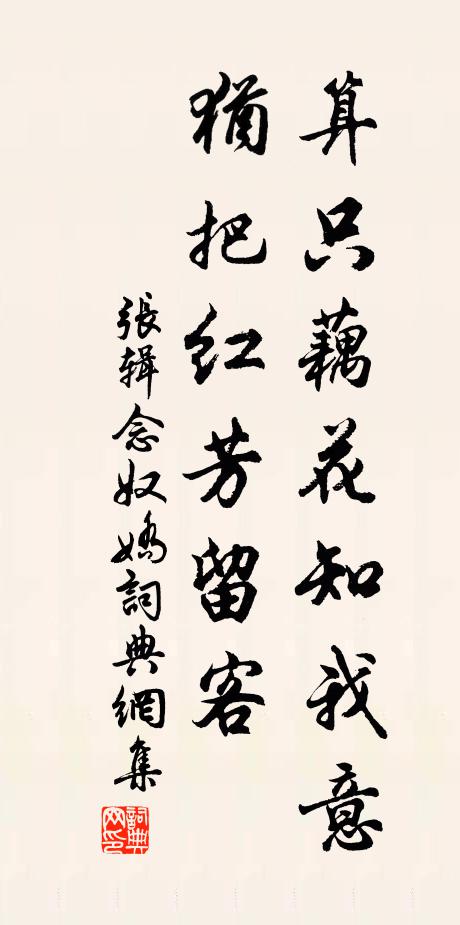 算只藕花知我意
猶把红芳留客
張辑念奴嬌詞典網集
詞典網印